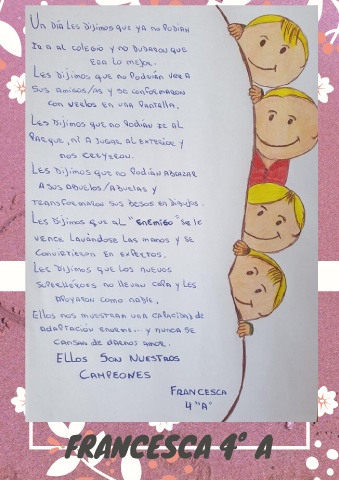 Un día les dijimos que ya no podían
ir a al colegio y no dudaron que
era lo mejor.
Les dijimos que no podrían ver a
sus amigos/as y se conformaron
con verlos en una pantalla.
Les dijimos que no podían ir al
parque, ni a jugar al exterior y
nos creyeron.
Les dijimos que no podían abrazar
a sus abuelos/abuelas y
transformaron sus besos en dibujos.
Les dijimos que al "enemigo" se le
vence lavándose las manos y se
convirtieron en expertos.
Les dijimos que los nuevos
superhéroes no llevan capa y les
apoyaron como nadie.
Ellos nos muestran una capacidad de
adaptación enorme... y nunca se
cansan de darnos amor.
Ellos son nuestros
campeones
Francesca
4 "A"
FRANCESCA 4° A